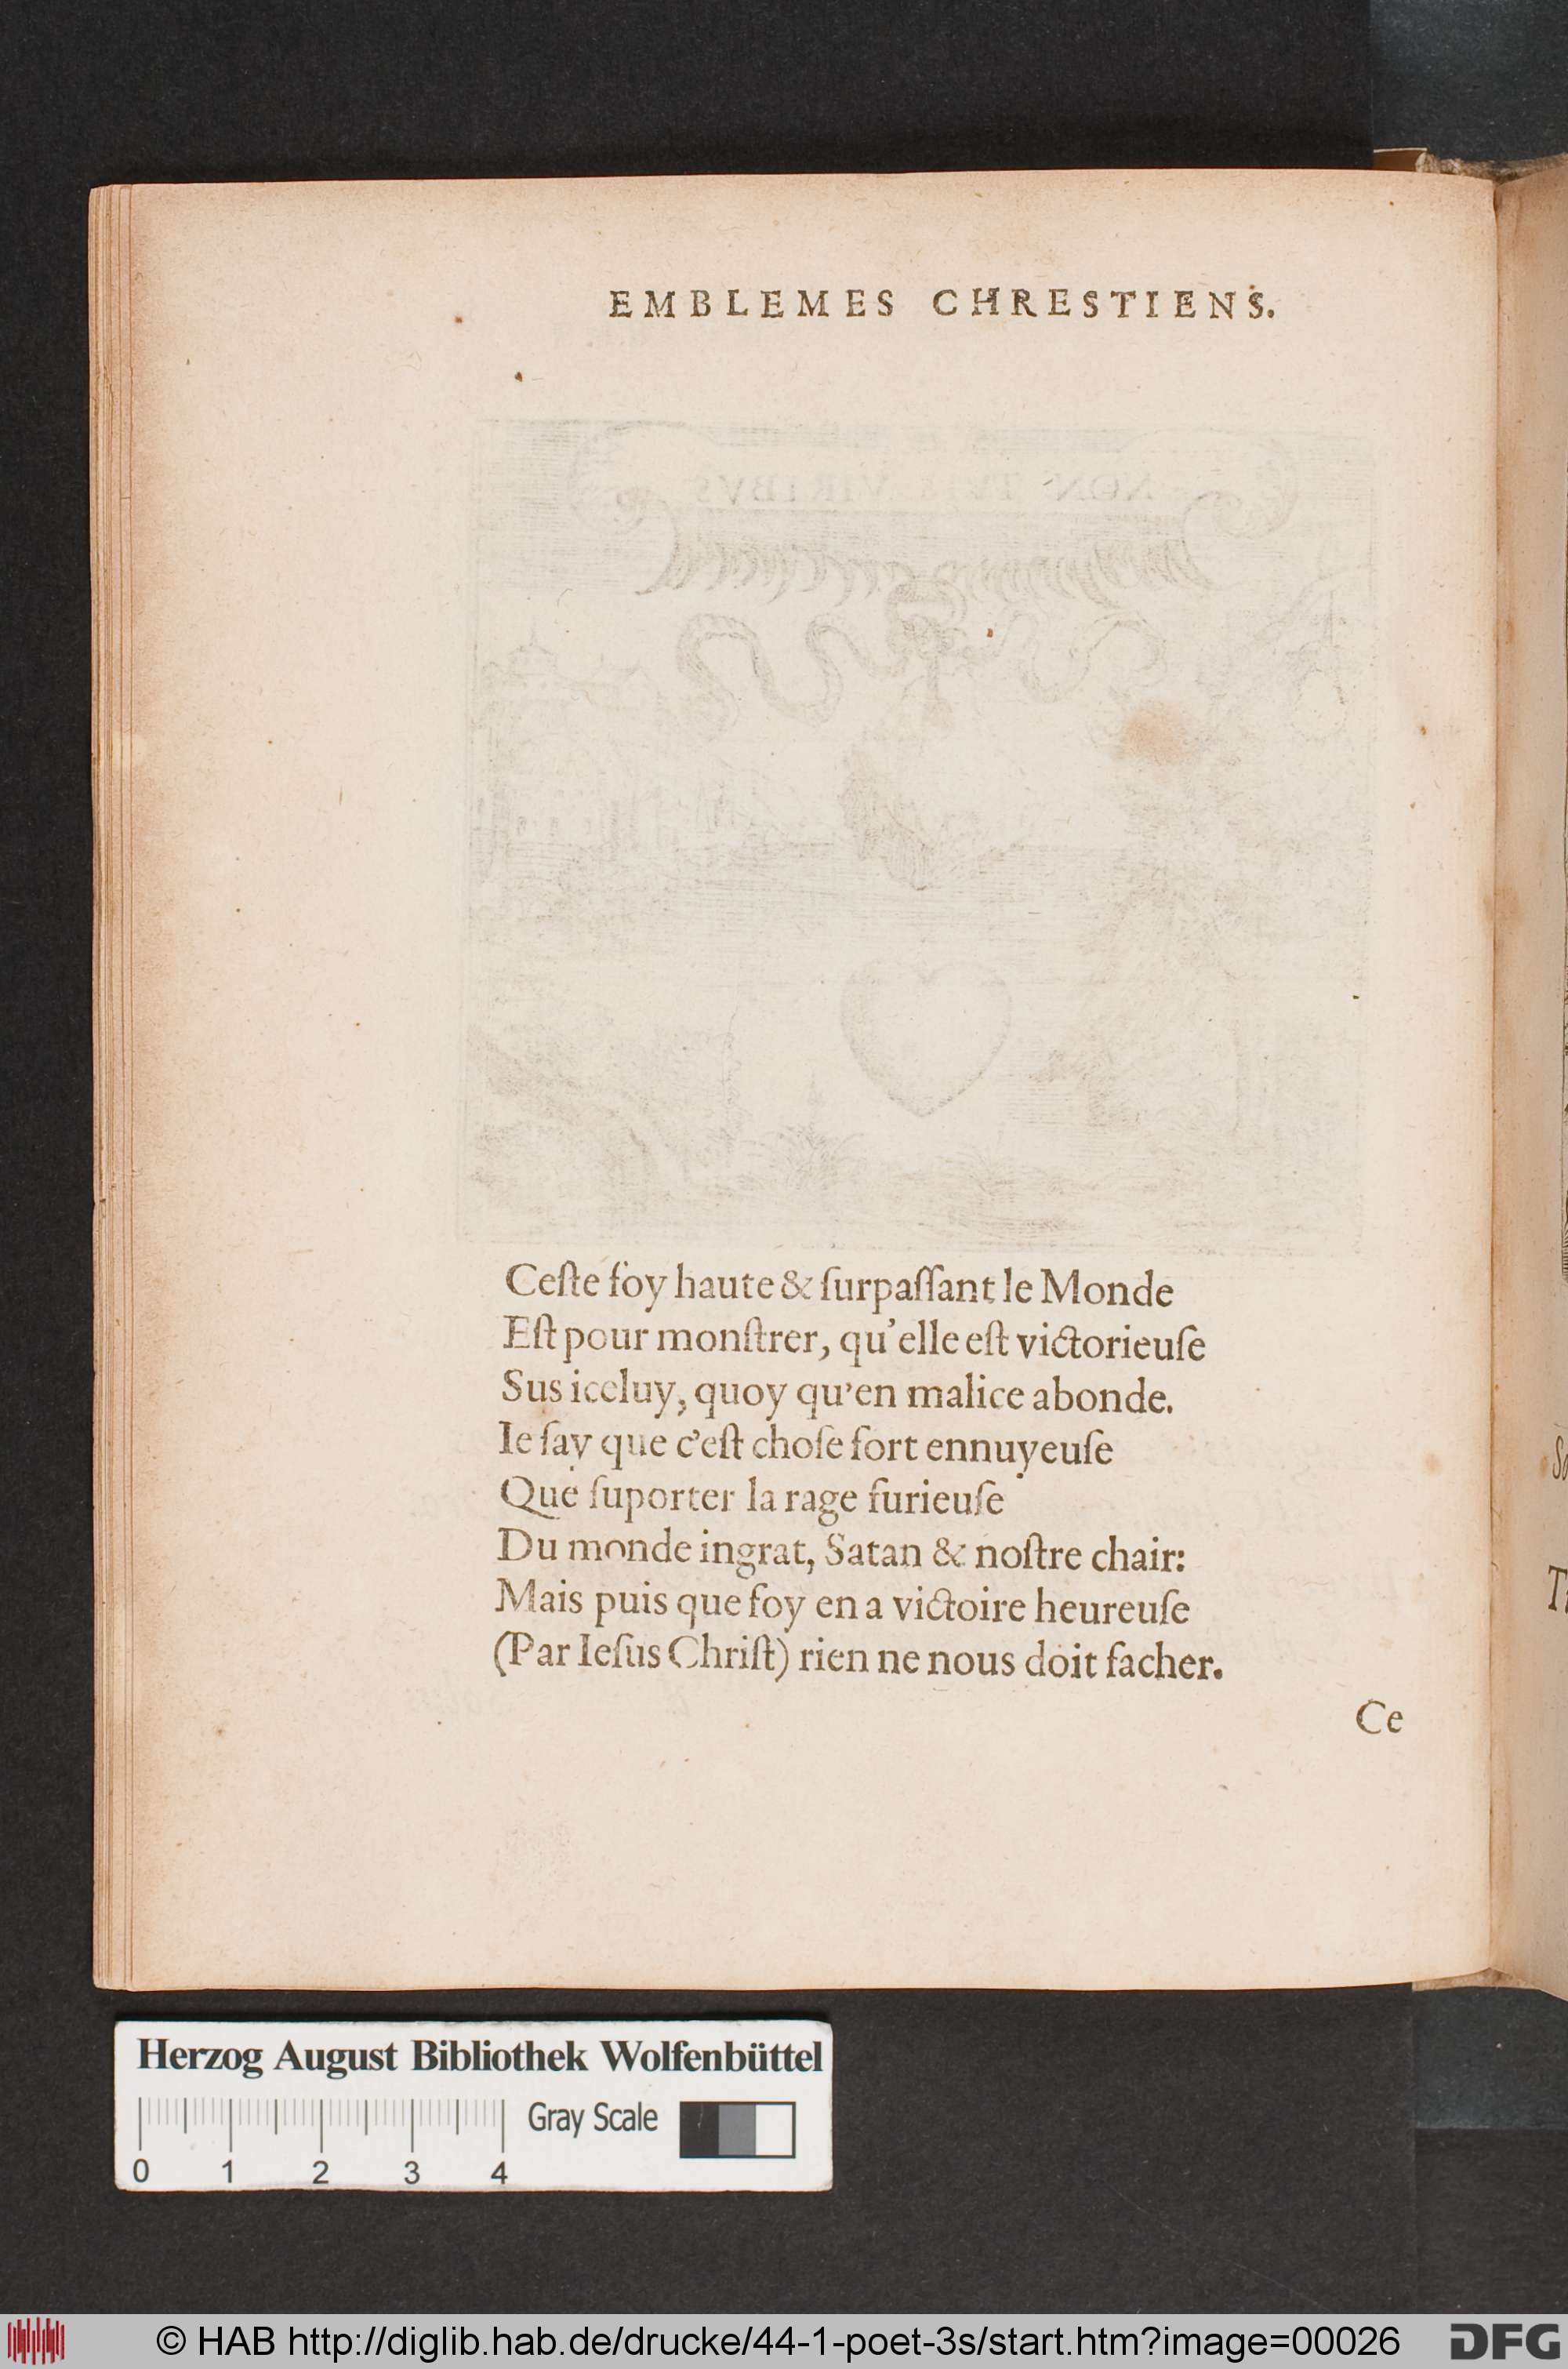 EMBLEMES CHRESTIENS.
NON TVIS VIRIBVS
Ceſte foy haute & ſurpaſſant le Monde
Eſt pour monſtrer, qu'elle eſt victorieuſe
Sus iceluy, quoy qu'en malice abonde.
Ie ſay que c'eſt choſe fort ennuyeuſe
Que ſuporter la rage furieuſe
Du monde ingrat, Satan & noſtre chair:
Mais puis que foy en a victoire heureuſe
(Par Ieſus Chriſt) rien ne nous doit facher.
Ce
Herzog August Bibliothek Wolfenbüttel
Gray Scale
0 1 2 3 4
© HAB http://diglib.hab.de/drucke/44-1-poet-3s/start.htm?image=00026
DFG